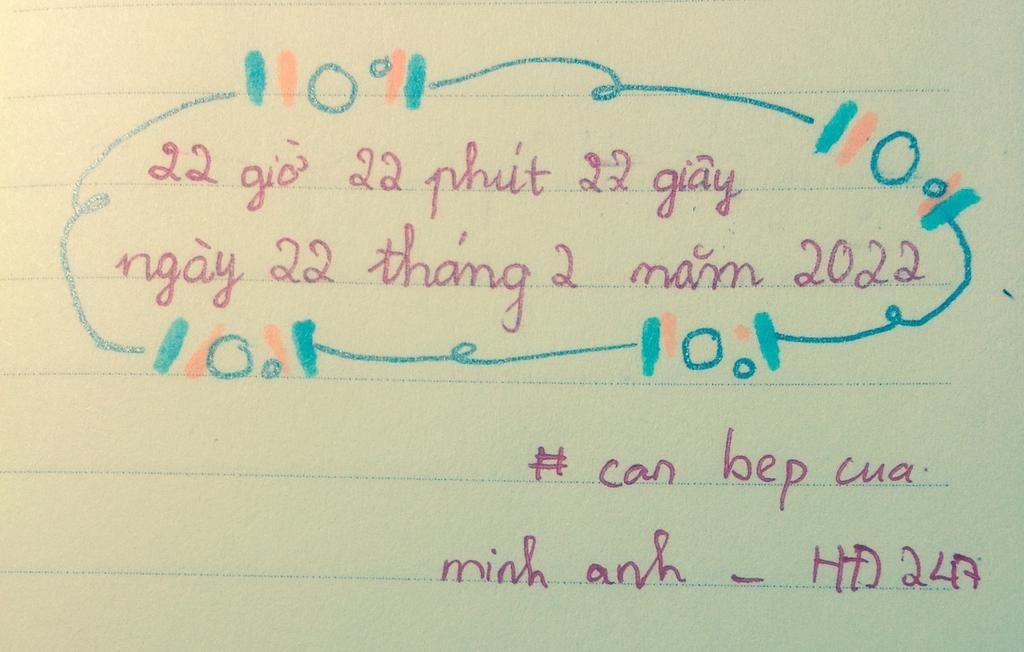 22 giờ 22 phút 22 giây
ngày 22 tháng 2 năm 2022
# can bep cua
minh anh - HĐ 247